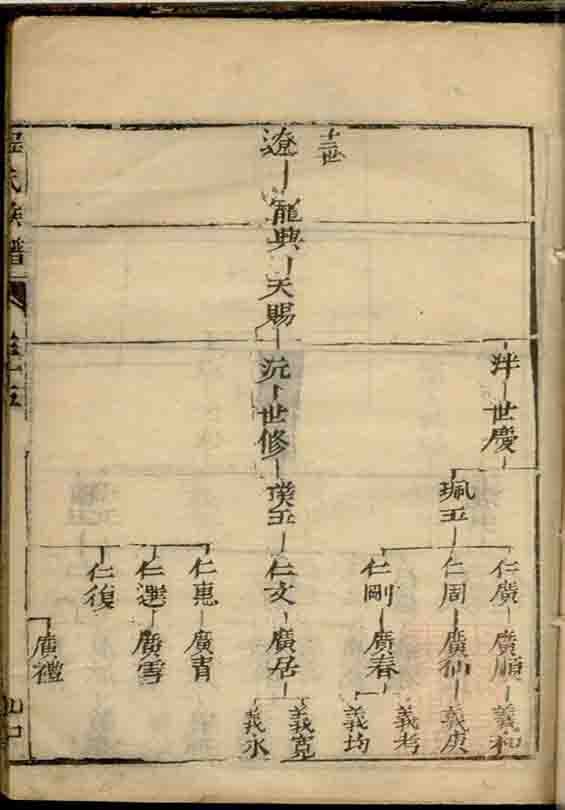 氏族譜
卷五
十二世
遼
寵典
天賜
泮
世慶
沅
世修
珮玉
璞玉
仁廣
廣順
義和
仁周
廣仙
義庚
仁剛
廣春
義考
義均
仁文
廣居
義寬
義永
仁惠
廣青
仁選
廣雪
仁復
廣禮